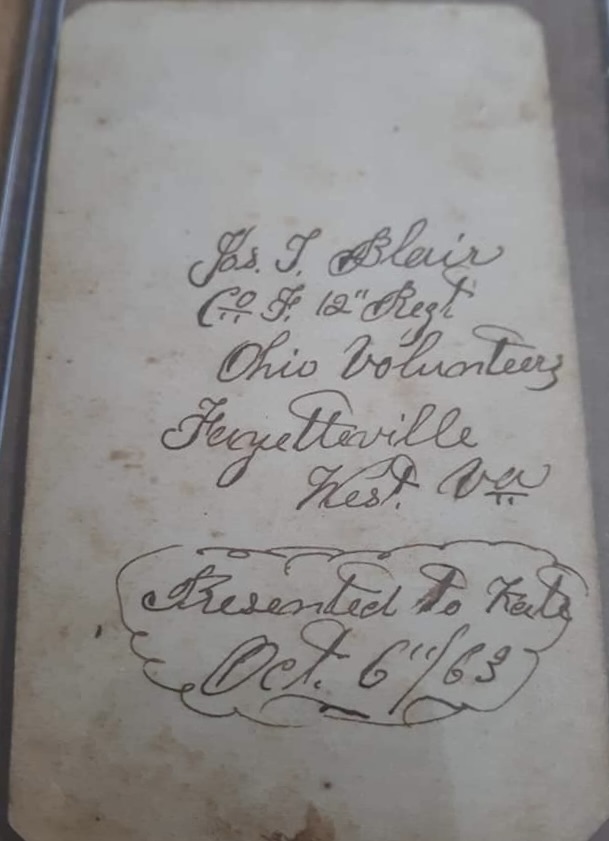 Jos. T. Blair
Co. F. 12" Regt
Ohio Volunteers
Fayetteville
West. Va
Presented to Kate
Oct. 6"/63